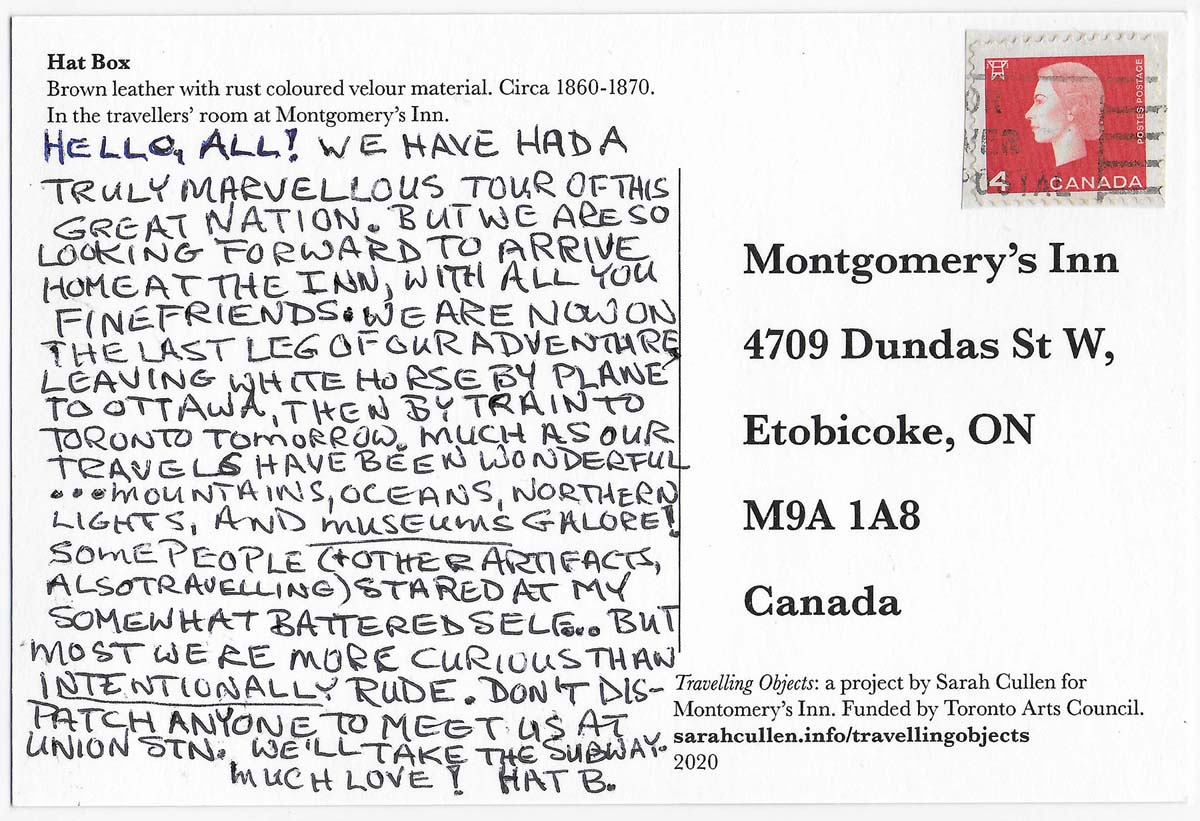 Hat Box
Brown leather with rust coloured velour material. Circa 1860-1870.
In the travellers' room at Montgomery's Inn.
HELLO, ALL! WE HAVE HAD A
TRULY MARVELLOUS TOUR OF THIS
GREAT NATION. BUT WE ARE SO
LOOKING FORWARD TO ARRIVE
HOME AT THE INN, WITH ALL YOU
FINE FRIENDS. WE ARE NOW ON
THE LAST LEG OF OUR ADVENTURE,
LEAVING WHITE HORSE BY PLANE
TO OTTAWA, THEN BY TRAIN TO
TORONTO TOMORROW. MUCH AS OUR
TRAVELS HAVE BEEN WONDERFUL
...MOUNTAINS, OCEANS, NORTHERN
LIGHTS, AND MUSEUMS GALORE!
SOME PEOPLE (+ OTHER ARTIFACTS,
ALSO TRAVELLING) STARED AT MY
SOMEWHAT BATTERED SELF... BUT
MOST WERE MORE CURIOUS THAN
INTENTIONALLY RUDE. DON'T DIS-
PATCH ANYONE TO MEET US AT
UNION STN. WE'LL TAKE THE SUBWAY.
MUCH LOVE! HAT B.
POSTES POSTAGE
4 CANADA
Montgomery's Inn
4709 Dundas St W,
Etobicoke, ON
M9A 1A8
Canada
Travelling Objects: a project by Sarah Cullen for
Montomery's Inn. Funded by Toronto Arts Council.
sarahcullen.info/travellingobjects
2020